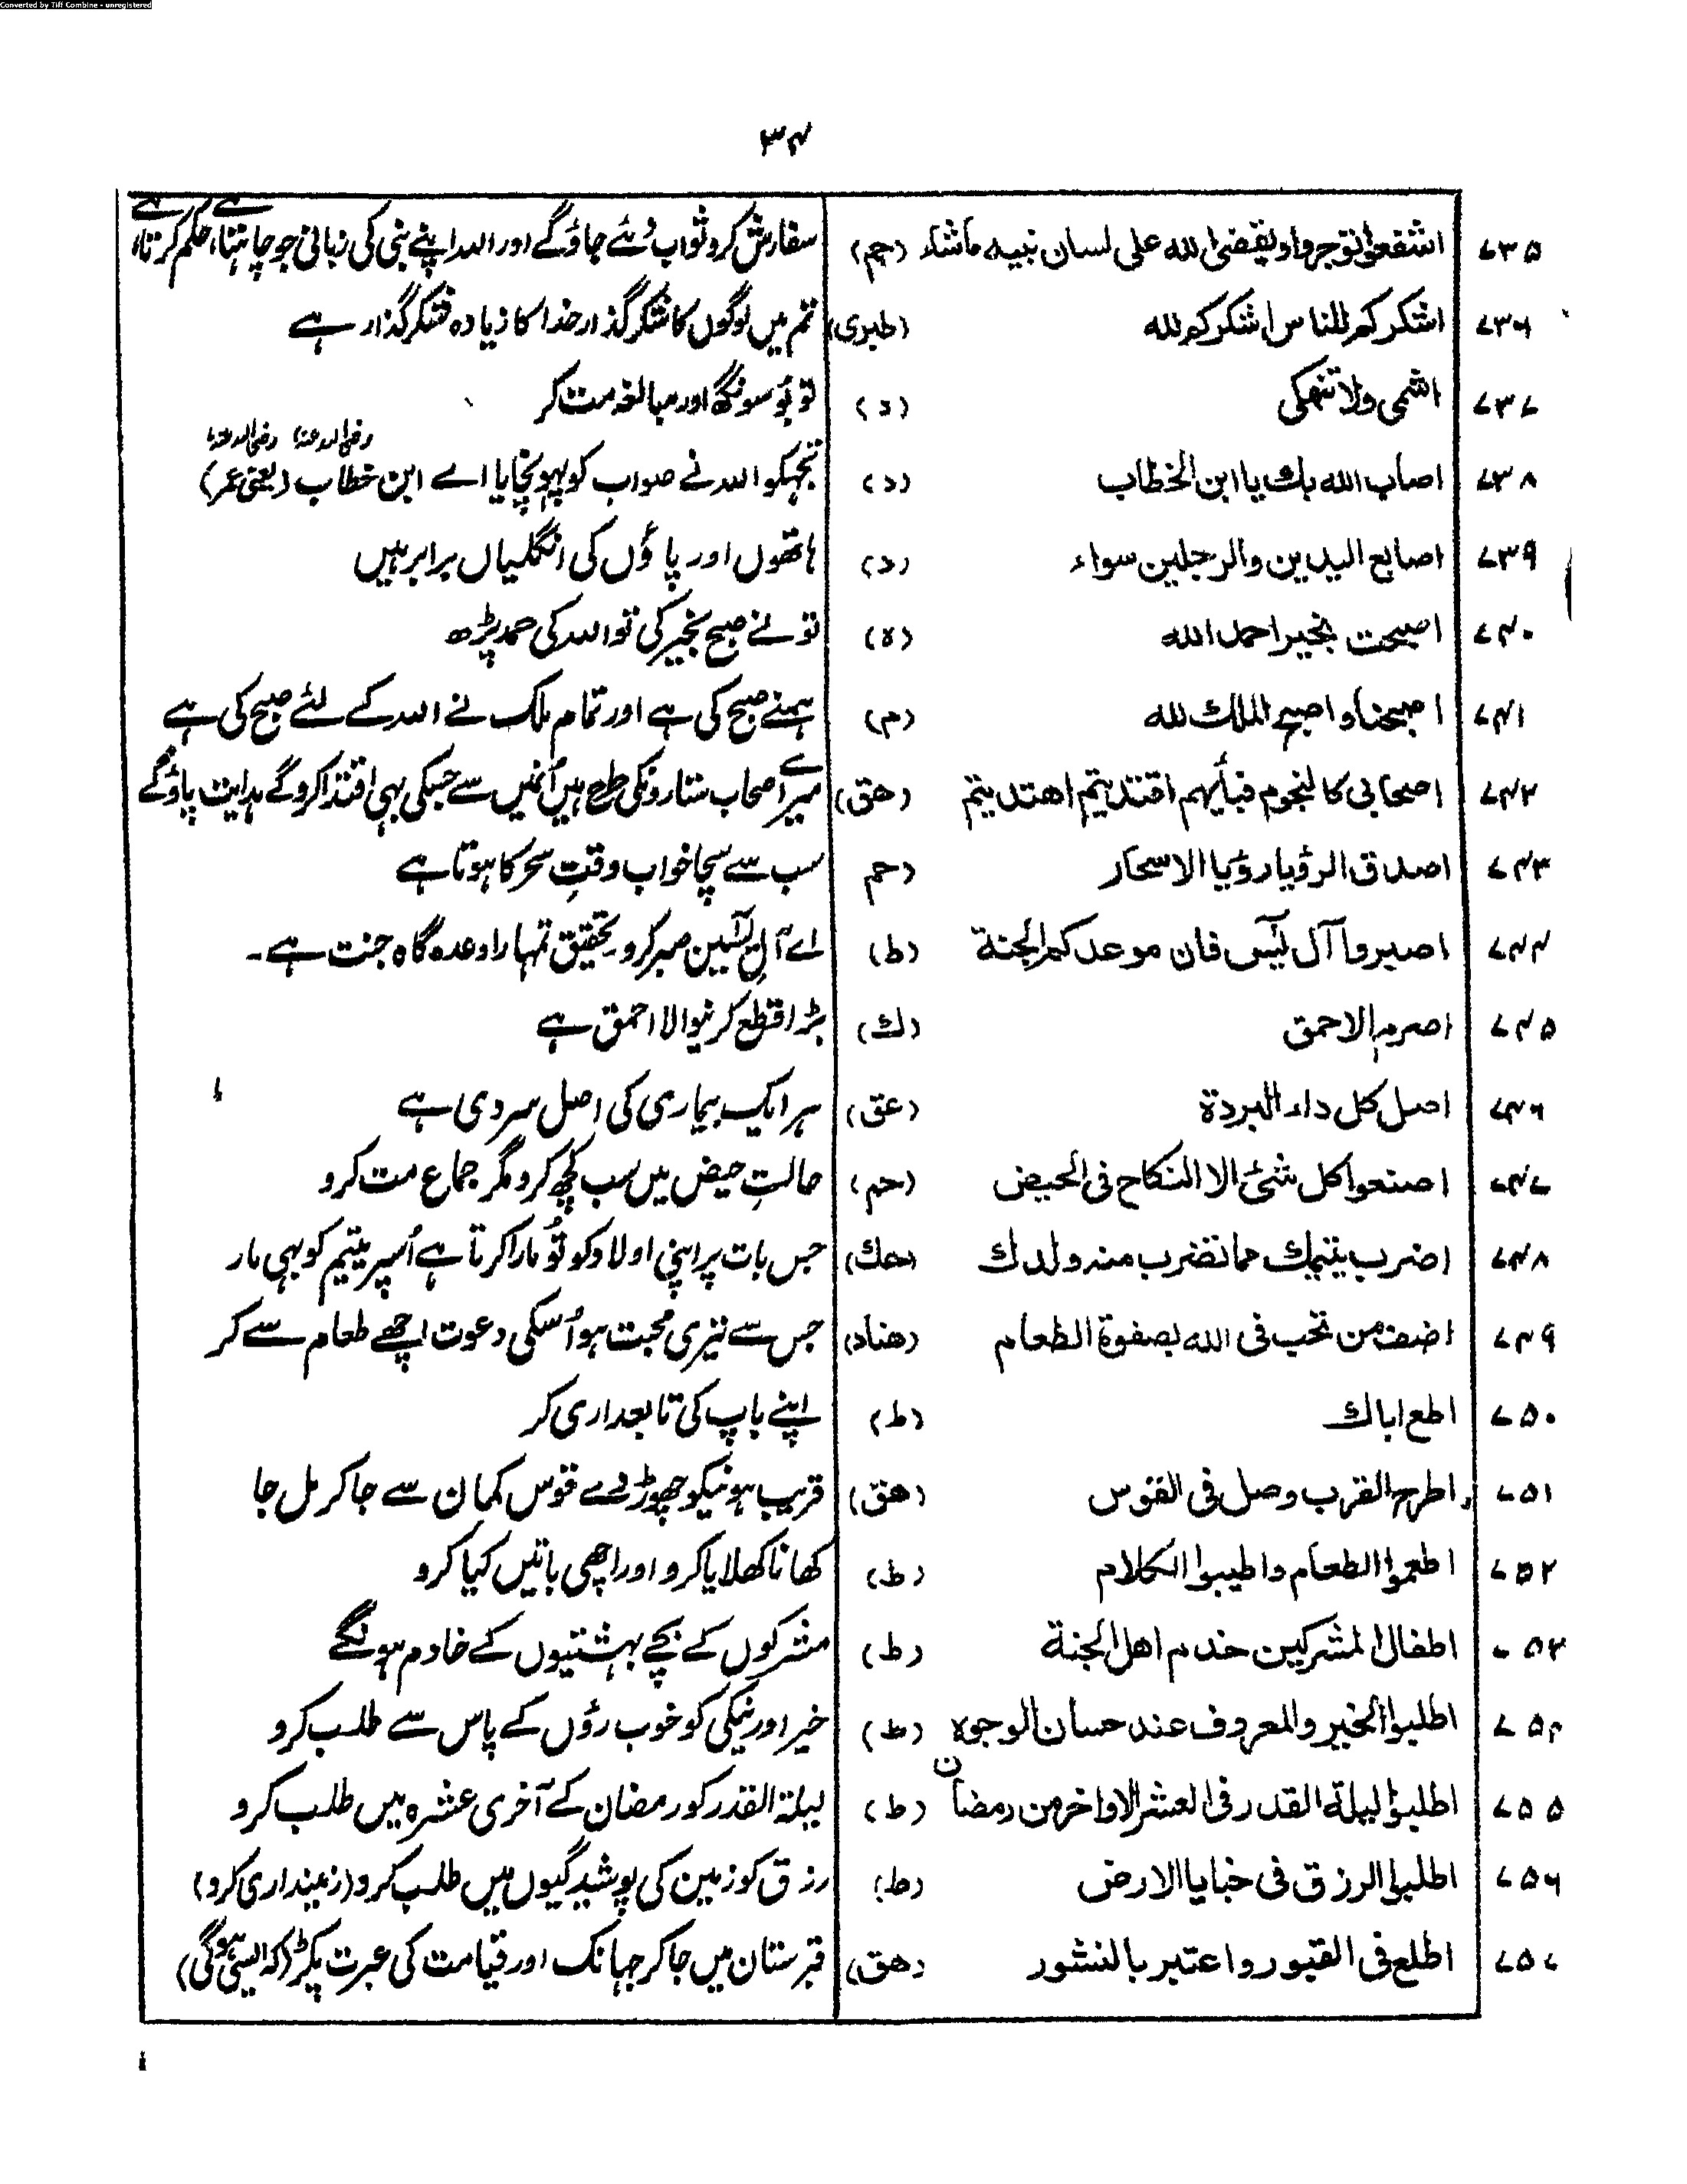 Converted by Tiff Combine - unregistered
۳۴
۷۳۵ اشفعوا توجروا ویقضی الله علی لسان نبیه ماشاء (حم) سفارش کرو ثواب دئے جاؤگے اور اللہ اپنے نبی کی زبانی جو چاہتا ہے حکم کرتا ہے
۷۳۶ اشکرکم للناس اشکرکم لله (طبری) تم میں لوگوں کا شکر گذار خدا کا زیادہ شکر گذار ہے
۷۳۷ اشمی ولا تنهکی (د) تو بُو سونگھ اور مبالغہ مت کر
۷۳۸ اصاب الله بك یا ابن الخطاب (د) تجہکو اللہ نے صواب کو پہونچایا اے ابن خطاب رضی اللہ عنہ (یعنی عمر رضی اللہ عنہ)
۷۳۹ اصابع الیدین والرجلین سواء (د) ہاتھوں اور پاؤں کی انگلیاں برابر ہیں
۷۴۰ اصبحت بخیر احمد الله (ه) تونے صبح بخیر کی تو اللہ کی حمد پڑھ
۷۴۱ اصبحنا واصبح الملك لله (م) ہمنے صبح کی ہے اور تمام ملک نے اللہ کے لئے صبح کی ہے
۷۴۲ اصحابی کالنجوم فبأیهم اقتدیتم اهتدیتم (هق) میرے اصحاب ستارونکی طرح ہیں اُنمیں سے جسکی بہی اقتدا کروگے ہدایت پاؤگے
۷۴۳ اصدق الرؤیا رؤیا الاسحار (حم سب سے سچا خواب وقتِ سحر کا ہوتا ہے
۷۴۴ اصبروا آل یٰسٓ فان موعدکم الجنة (ط) اے آلِ یٰسین صبر کرو۔ تحقیق تمہارا وعدہ گاہ جنت ہے۔
۷۴۵ اصرم الاحمق (ك) بڑا قطع کرنیوالا احمق ہے
۷۴۶ اصل کل داء البردة (عق) ہر ایک بیماری کی اصل سردی ہے
۷۴۷ اصنعوا کل شئ الا النکاح فی الحیض (حم) حالتِ حیض میں سب کچھ کرو مگر جماع مت کرو
۷۴۸ اضرب یتیمك مما تضرب منه ولدك (هك) جس بات پر اپنی اولاد کو تُو مارا کرتا ہے اُسپر یتیم کو بہی مار
۷۴۹ اضف من تحب فی الله بصفوة الطعام (هناد) جس سے تیری محبت ہو اُسکی دعوت اچھے طعام سے کر
۷۵۰ اطع اباك (ط) اپنے باپ کی تابعداری کر
۷۵۱ اطرح القرب وصل فی القوس (هق) قریب ہونیکو چھوڑ دے قوس کمان سے جا کر مل جا
۷۵۲ اطعموا الطعام واطیبوا الکلام (ط) کھانا کھلایا کرو اور اچھی باتیں کیا کرو
۷۵۳ اطفال المشرکین خدم اهل الجنة (ط) مشرکوں کے بچے بہشتیوں کے خادم ہونگے
۷۵۴ اطلبوا الخیر والمعروف عند حسان الوجوه (ط) خیر اور نیکی کو خوب رؤں کے پاس سے طلب کرو
۷۵۵ اطلبوا لیلة القدر فی العشر الاواخر من رمضان (ط) لیلۃ القدر کو رمضان کے آخری عشرہ میں طلب کرو
۷۵۶ اطلبوا الرزق فی خبایا الارض (ط) رزق کو زمین کی پوشیدگیوں میں طلب کرو (زمینداری کرو)
۷۵۷ اطلع فی القبور واعتبر بالنشور (هق) قبرستان میں جا کر جہانک اور قیامت کی عبرت پکڑ (کہ ایسی ہوگی)